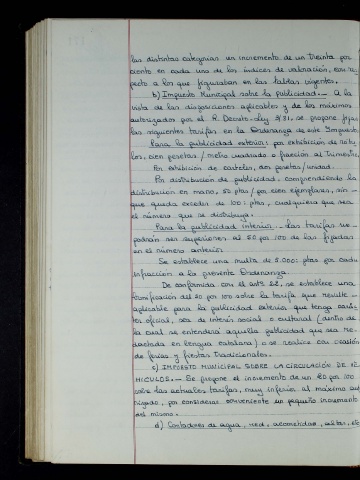 las distintas categorias un incremento de un Treinta por
ciento en cada uno de los índices de valoración, con res-
pecto a los que figuraban en las tablas vigentes.
b) Impuesto Municipal sobre la Publicidad.- A la
vista de las disposiciones aplicables y de los máximos
autorizados por el R. Decreto-Ley 3/81, se propone fijar
las siguientes tarifas en la Ordenanza de este Impuesto
Para la publicidad exterior: por exhibición de rótu-
los, cien pesetas / metro cuadrado o fracción al Trimestre.
En exhibición de carteles, dos pesetas/unidad.
En distribución de publicidad: comprendiendo la
distribución en mano, 50 ptas/por cien ejemplares, sin
que pueda exceder de 100 ptas, cualquiera que sea
el número que se distribuya.
Para la publicidad interior.- Las tarifas no
podrán ser superiores al 50 por 100 de las fijadas
en el número anterior.
Se establece una multa de 5.000 ptas por cada
infracción a la presente Ordenanza.
De conformidad con el artº 22, se establece una
bonificación del 50 por 100 sobre la tarifa que resulte
aplicable para la publicidad exterior que tenga carác-
ter oficial, sea de interés social o cultural (dentro de
la cual se entenderá aquella publicidad que sea re-
dactada en lengua catalana) o se realice con ocasión
de ferias y fiestas tradicionales.
c) IMPUESTO MUNICIPAL SOBRE LA CIRCULACIÓN DE VE-
HICULOS.- Se propone el incremento de un 20 por 100
sobre las actuales tarifas, muy inferior al máximo au-
torizado, por considerar conveniente un pequeño incremento
del mismo.
d) Contadores de agua, red, acometidas, altas, etc